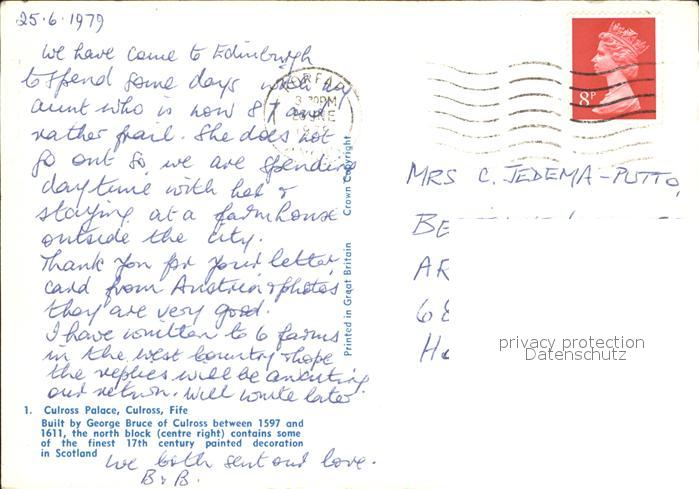 25.6.1979
We have come to Edinburgh
to spend some days with my
aunt who is now 87 and
rather frail. She does not
go out so we are spending
daytime with her &
staying at a farmhouse
outside the city.
Thank you for your letter,
card from Austria & photos,
they are very good.
I have written to 6 farms
in the west country & hope
the replies will be awaiting
our return. Will write later.
1. Culross Palace, Culross, Fife
Built by George Bruce of Culross between 1597 and
1611, the north block (centre right) contains some
of the finest 17th century painted decoration
in Scotland
We both send our love.
B & B.
Printed in Great Britain Crown Copyright
FORFAR
3 30PM
JNE
8P
MRS C. JEDEMA-PUTTO,
BE
AR
68
Ho
privacy protection
Datenschutz